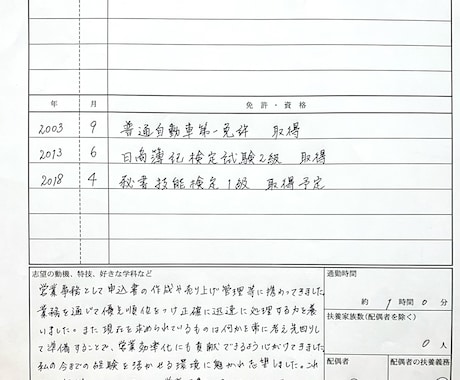 年 月 免許・資格
2003 9 普通自動車第一免許 取得
2013 6 日商簿記検定試験2級 取得
2018 4 秘書技能検定1級 取得予定
志望の動機、特技、好きな学科など
営業事務として申込書の作成や売り上げ管理等に携わってきました。
業務を通じて優先順位をつけ正確に迅速に処理する力を養
いました。また現在求められているものは何かを常に考え先回りし
て準備することで、営業効率化にも貢献できるよう心がけてきました。
私の今までの経験を活かせる環境に魅かれ志望しました。これ
通勤時間
約 1 時間 0 分
扶養家族数(配偶者を除く)
0 人
配偶者
配偶者の扶養義務